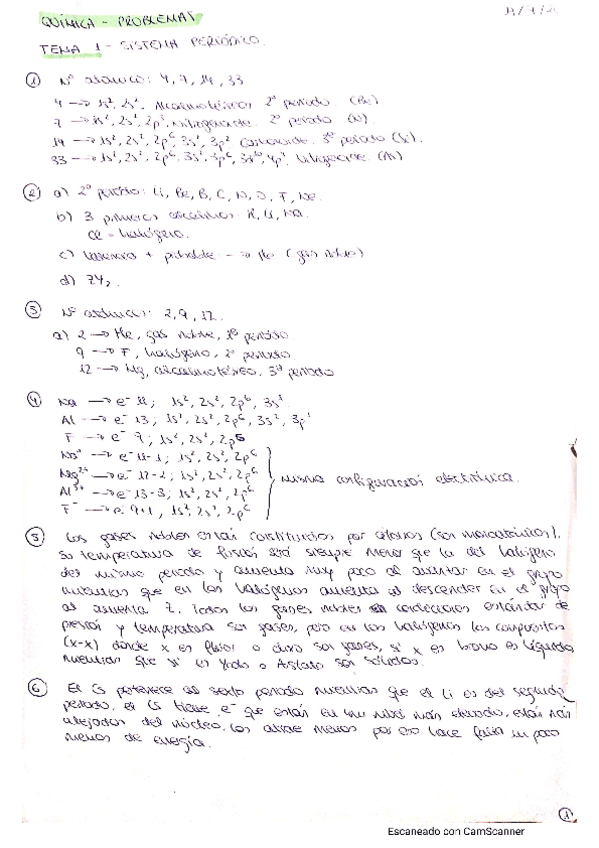 QUÍMICA - PROBLEMAS
TEMA 1 - SISTEMA PERIÓDICO.
① Nº atómico: 4, 7, 14, 33
4 → 1s², 2s². Alcalinotérreo 2º periodo. (Be)
7 → 1s², 2s², 2p³. Nitrogenoide. 2º periodo (N)
14 → 1s², 2s², 2p⁶, 3s², 3p² Carbonoide. 3er periodo (Si).
33 → 1s², 2s², 2p⁶, 3s², 3p⁶, 3d¹⁰, 4p³. Nitrogenoide. (As)
② a) 2º periodo: Li, Be, B, C, N, O, F, Ne.
b) 3 primeros alcalinos: H, Li, Na.
Cl = halógeno.
c) → He (gas noble)
d)
③ Nº atómicos: 2, 9, 12.
a) 2 → He, gas noble, 1er periodo
9 → F, halógeno, 2º periodo.
12 → Mg, alcalinotérreo, 3er periodo
④ Na → e⁻ 11; 1s², 2s², 2p⁶, 3s¹
Al → e⁻ 13; 1s², 2s², 2p⁶, 3s², 3p¹
F → e⁻ 9; 1s², 2s², 2p⁵
Na⁺ → e⁻ 11-1; 1s², 2s², 2p⁶
Mg²⁺ → e⁻ 12-2; 1s², 2s², 2p⁶
Al³⁺ → e⁻ 13-3; 1s², 2s², 2p⁶
F⁻ → e⁻ 9+1, 1s², 2s², 2p⁶
misma configuración electrónica.
⑤ Los gases nobles están constituidos por átomos (son monoatómicos).
Su temperatura de fusión será siempre menor que la del halógeno
del mismo periodo y aumenta muy poco al aumentar en el grupo
mientras que en los halógenos aumenta al descender en el grupo
al aumenta Z. Todos los gases nobles en condiciones estándar de
presión y temperatura son gases, pero en los halógenos los compuestos
(x-x) donde x es flúor o cloro son gases, si x es bromo es líquido
mientras que si es Yodo o Astato son sólidos.
⑥ El Cs pertenece al sexto periodo mientras que el Li es del segundo
periodo. el Cs tiene e⁻ que están en un nivel más elevado, están más
alejados del núcleo. Los atrae menos por eso hace falta un poco
menos de energía.
①
Escaneado con CamScanner